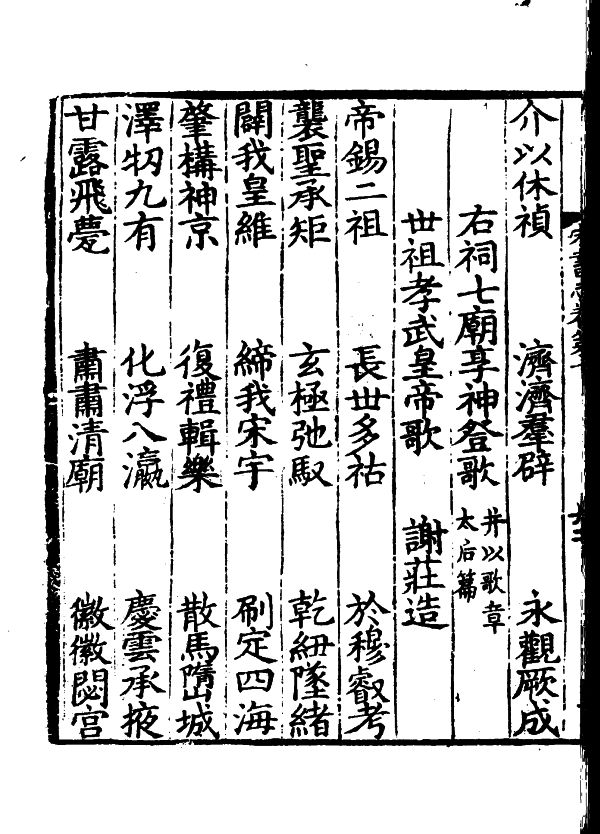 介以休禎 濟濟羣辟 永觀厥成
右祠七廟享神登歌 并以歌章太后篇
世祖孝武皇帝歌 謝莊造
帝錫二祖 長世多祜 於穆叡考
襲聖承矩 玄極弛馭 乾紐墜緒
闢我皇維 締我宋宇 刷定四海
肇構神京 復禮輯樂 散馬隳城
澤牣九有 化浮八瀛 慶雲承掖
甘露飛甍 肅肅清廟 徽徽閟宮